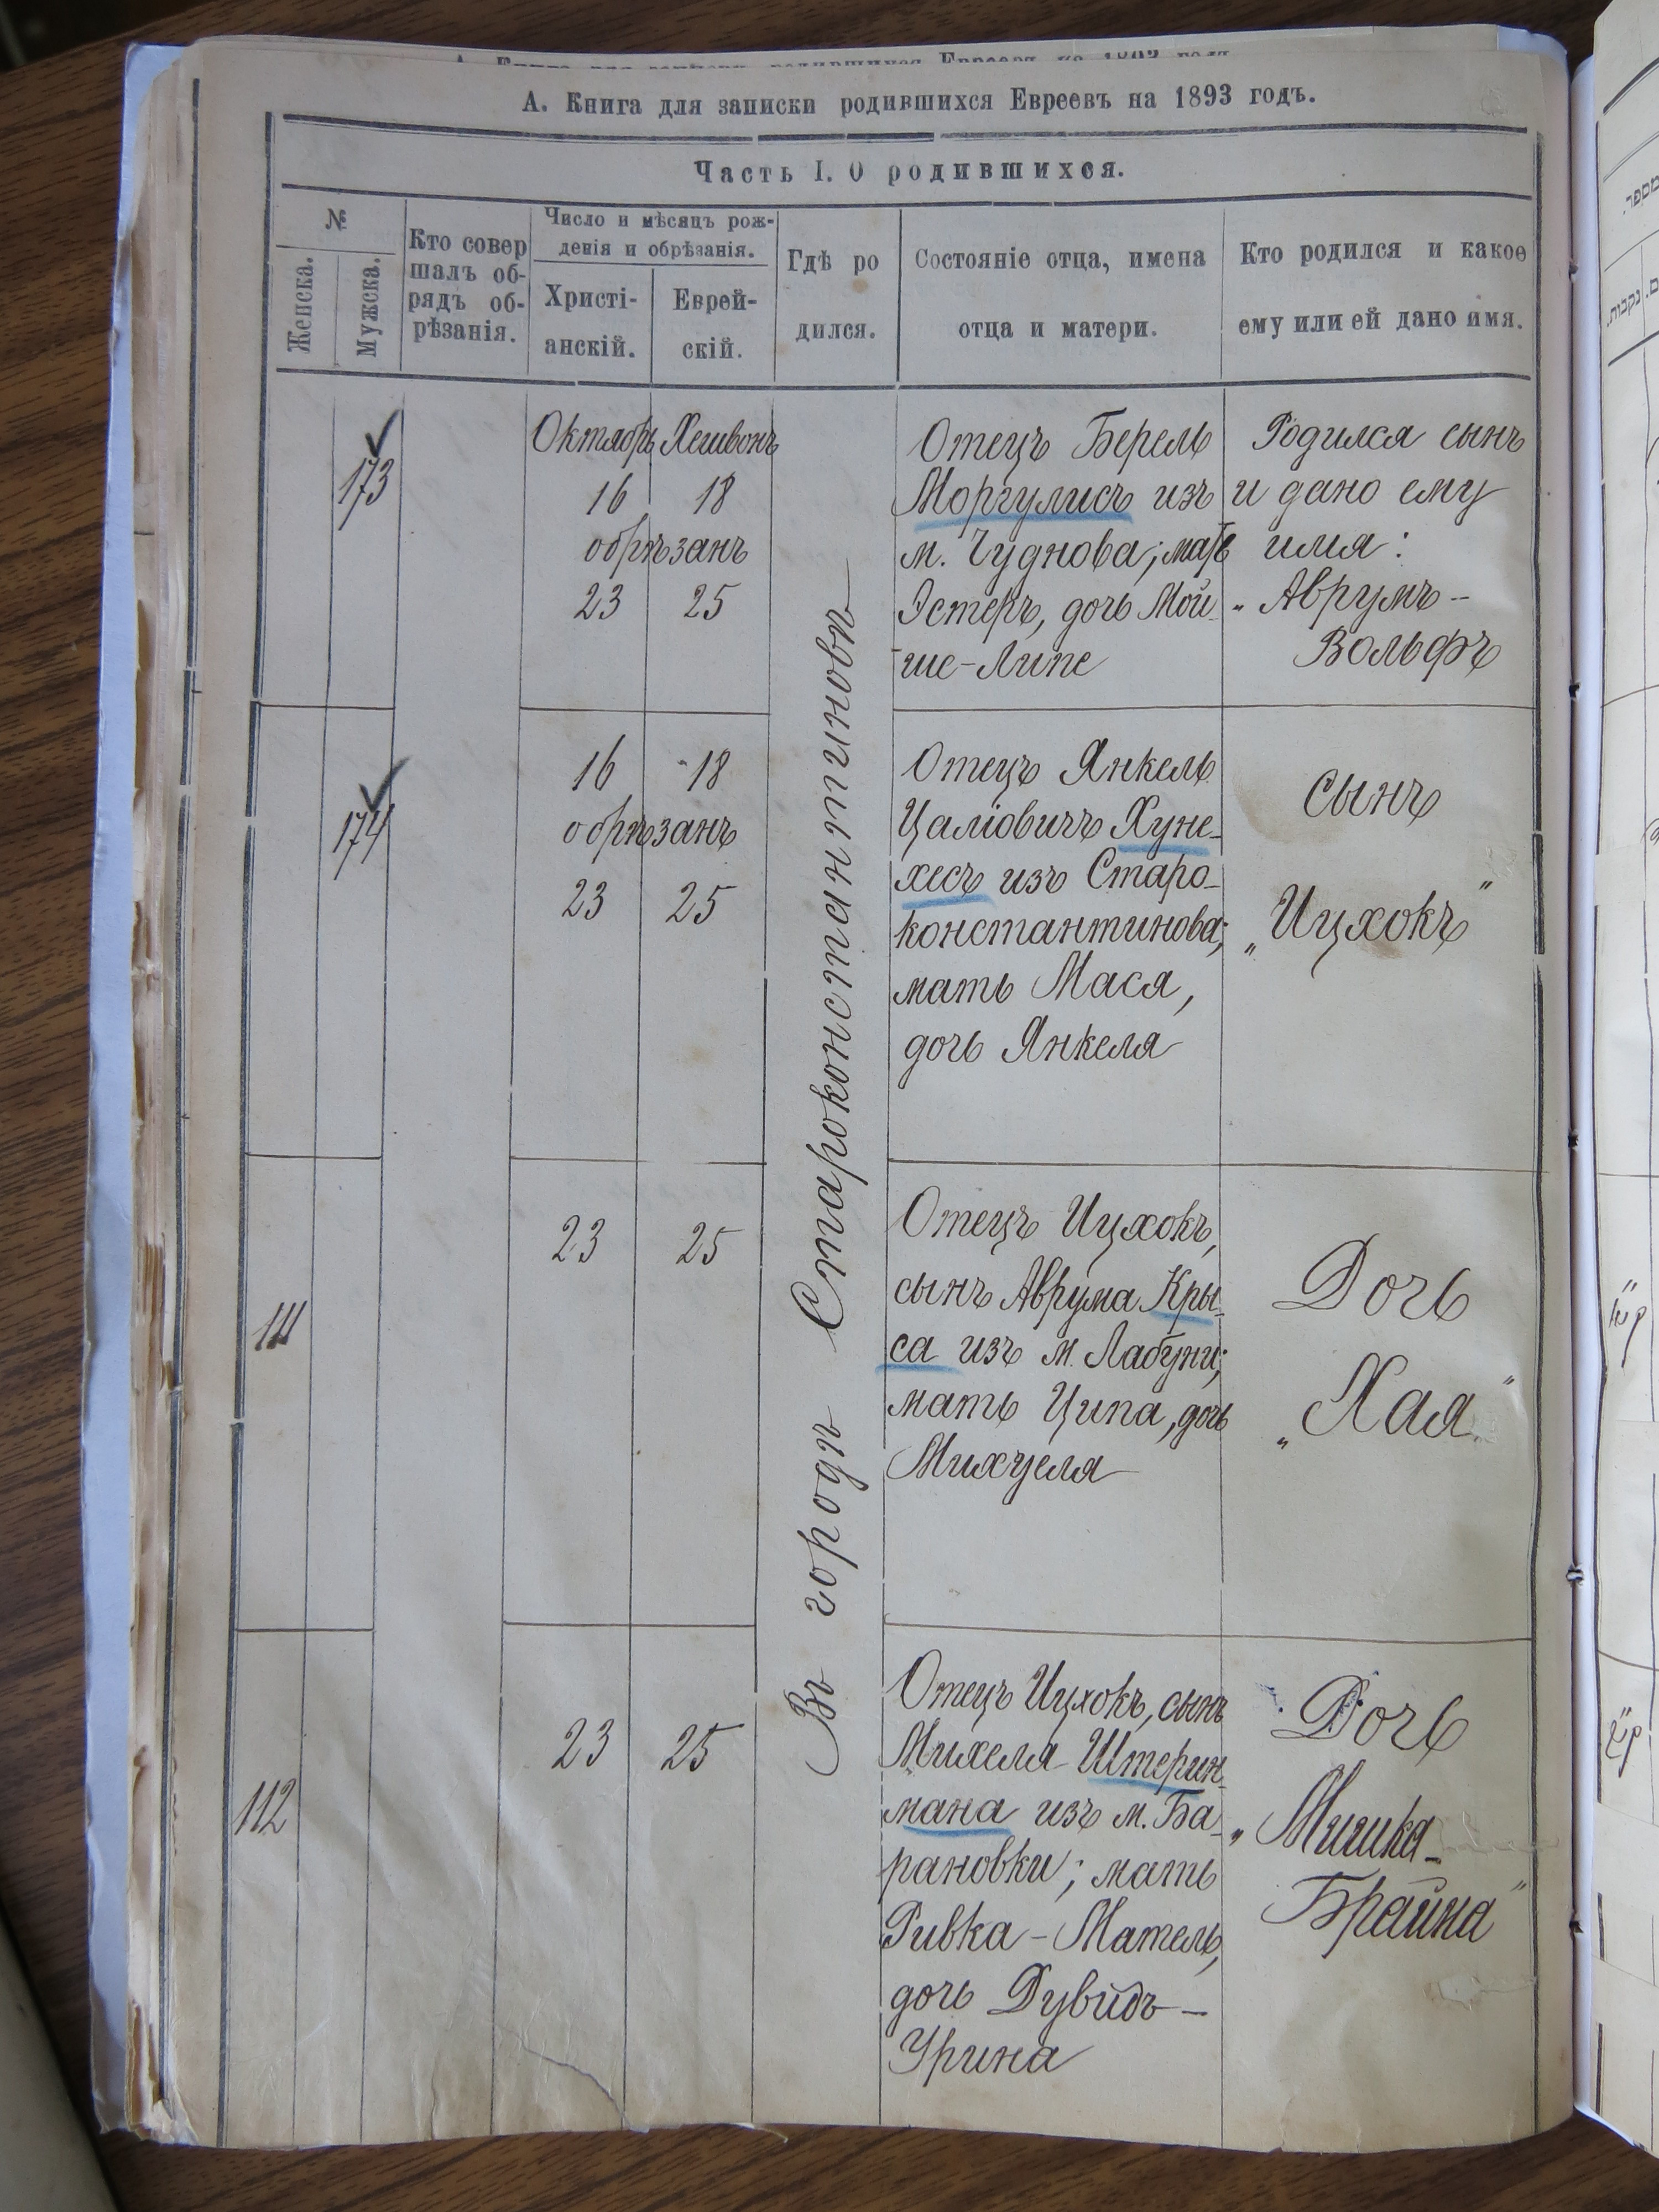 А. Книга для записки родившихся Евреевъ на 1893 годъ.
Часть I. О родившихся.
№
Женска.
Мужска.
Кто совер
шалъ об-
рядъ об-
рѣзанія.
Число и мѣсяцъ рож-
денія и обрѣзанія.
Христі-
анскій.
Еврей-
скій.
Гдѣ ро
дился.
Состояніе отца, имена
отца и матери.
Кто родился и какое
ему или ей дано имя.
173
Октябрь Хешвонъ
16 18
обрѣзанъ
23 25
Отецъ Берель
Моргулисъ изъ
м. Чуднова; мать
Эстеръ, дочь Мой-
ше-Липе
Родился сынъ
и дано ему
имя:
„Аврумъ-
Вольфъ
174
16 18
обрѣзанъ
23 25
Отецъ Янкель
Цаліовичъ Хуне-
хесъ изъ Старо-
константинова;
мать Мася,
дочь Янкеля
сынъ
„Ицхокъ"
111
23 25
Отецъ Ицхокъ,
сынъ Аврума Кры-
са изъ м. Лабуни;
мать Ципа, дочь
Михцеля
Дочь
„Хая"
112
23 25
Отецъ Ицхокъ, сынъ
Михеля Штерин-
мана изъ м. Ба-
рановки; мать
Ривка-Матель,
дочь Дувидъ-
Урина
Дочь
„Мишка-
Брайна"
Въ городѣ Староконстантиновѣ